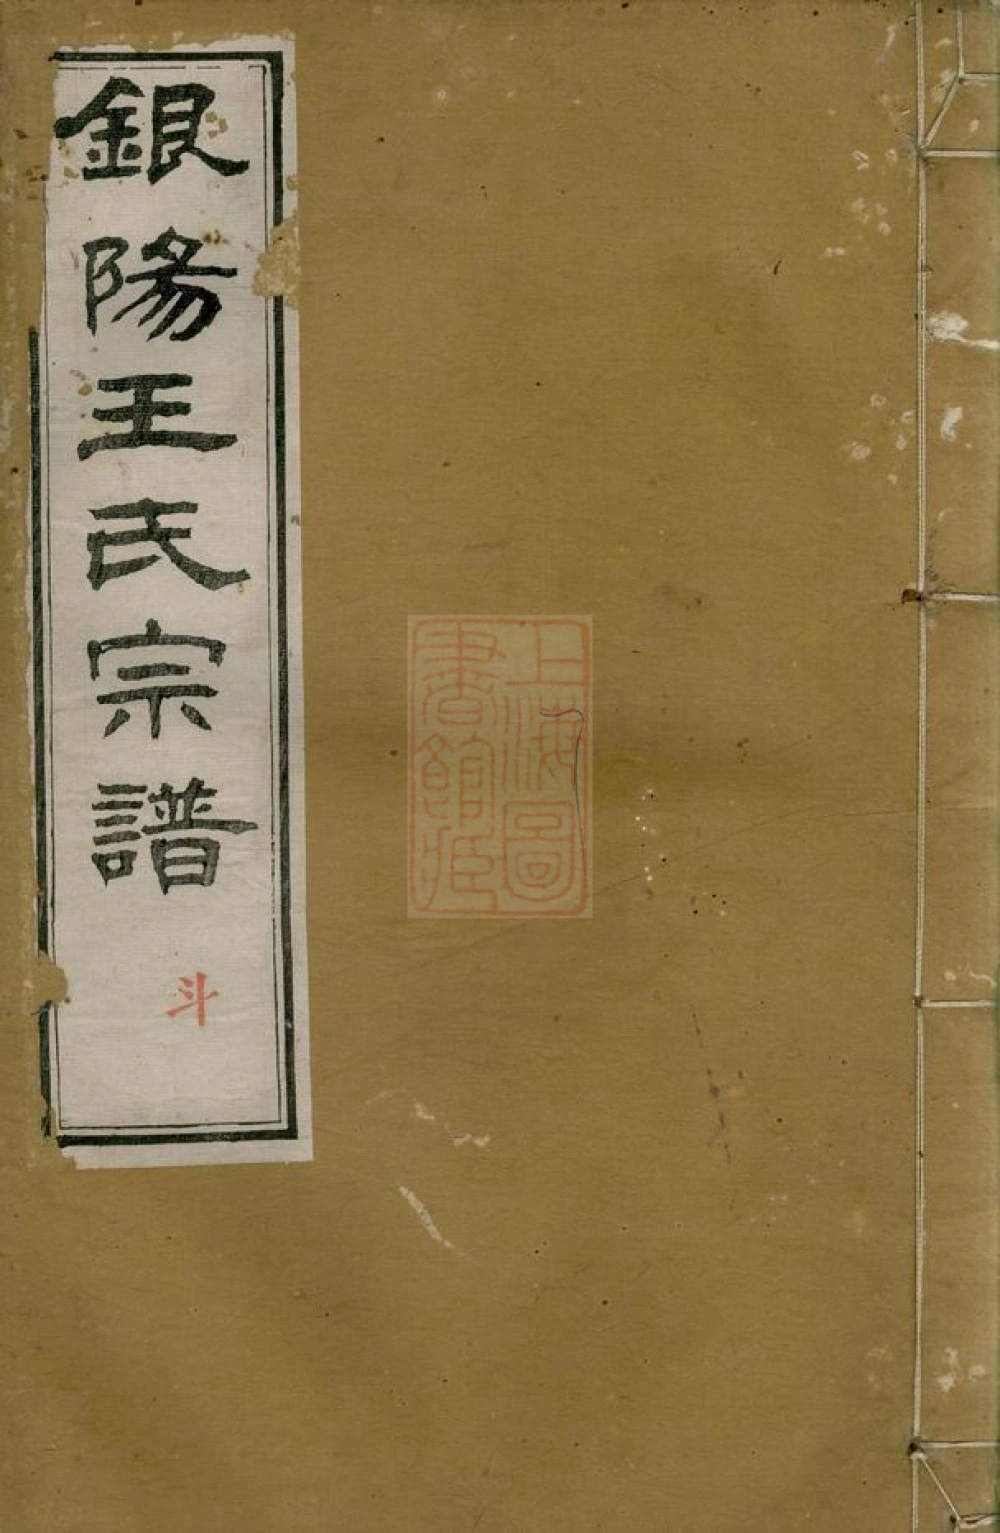 銀陽王氏宗譜
斗
上海圖
書館藏